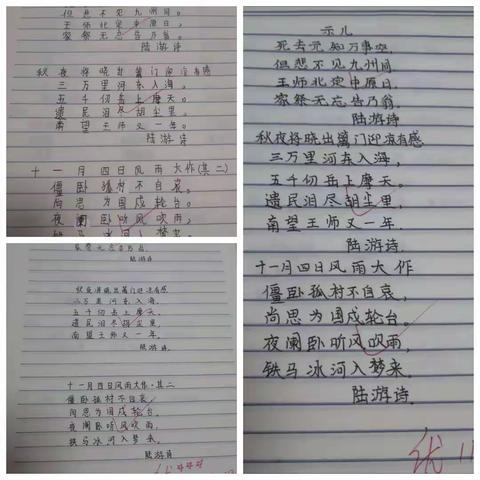 但悲不见九州同。
王师北定中原日。
家祭无忘告乃翁。
陆游诗
秋夜将晓出篱门迎凉有感
三万里河东入海,
五千仞岳上摩天。
遗民泪尽胡尘里,
南望王师又一年。
陆游诗
十一月四日风雨大作(其二)
僵卧孤村不自哀,
尚思为国戍轮台。
夜阑卧听风吹雨,
铁马冰河入梦来。
家祭无忘告乃翁
陆游诗
秋夜将晓出篱门迎凉有感
三万里河东入海,
五千仞岳上摩天。
遗民泪尽胡尘里,
南望王师又一年。
陆游诗
十一月四日风雨大作·其二
僵卧孤村不自哀,
尚思为国戍轮台。
夜阑卧听风吹雨,
铁马冰河入梦来。
陆游诗
优
示儿
死去元知万事空,
但悲不见九州同
王师北定中原日,
家祭无忘告乃翁。
陆游诗
秋夜将晓出篱门迎凉有感
三万里河东入海,
五千仞岳上摩天。
遗民泪尽胡尘里,
南望王师又一年.
陆游诗.
十一月四日风雨大作
僵卧孤村不自哀,
尚思为国戍轮台。
夜阑卧听风吹雨,
铁马冰河入梦来.
陆游诗.
优